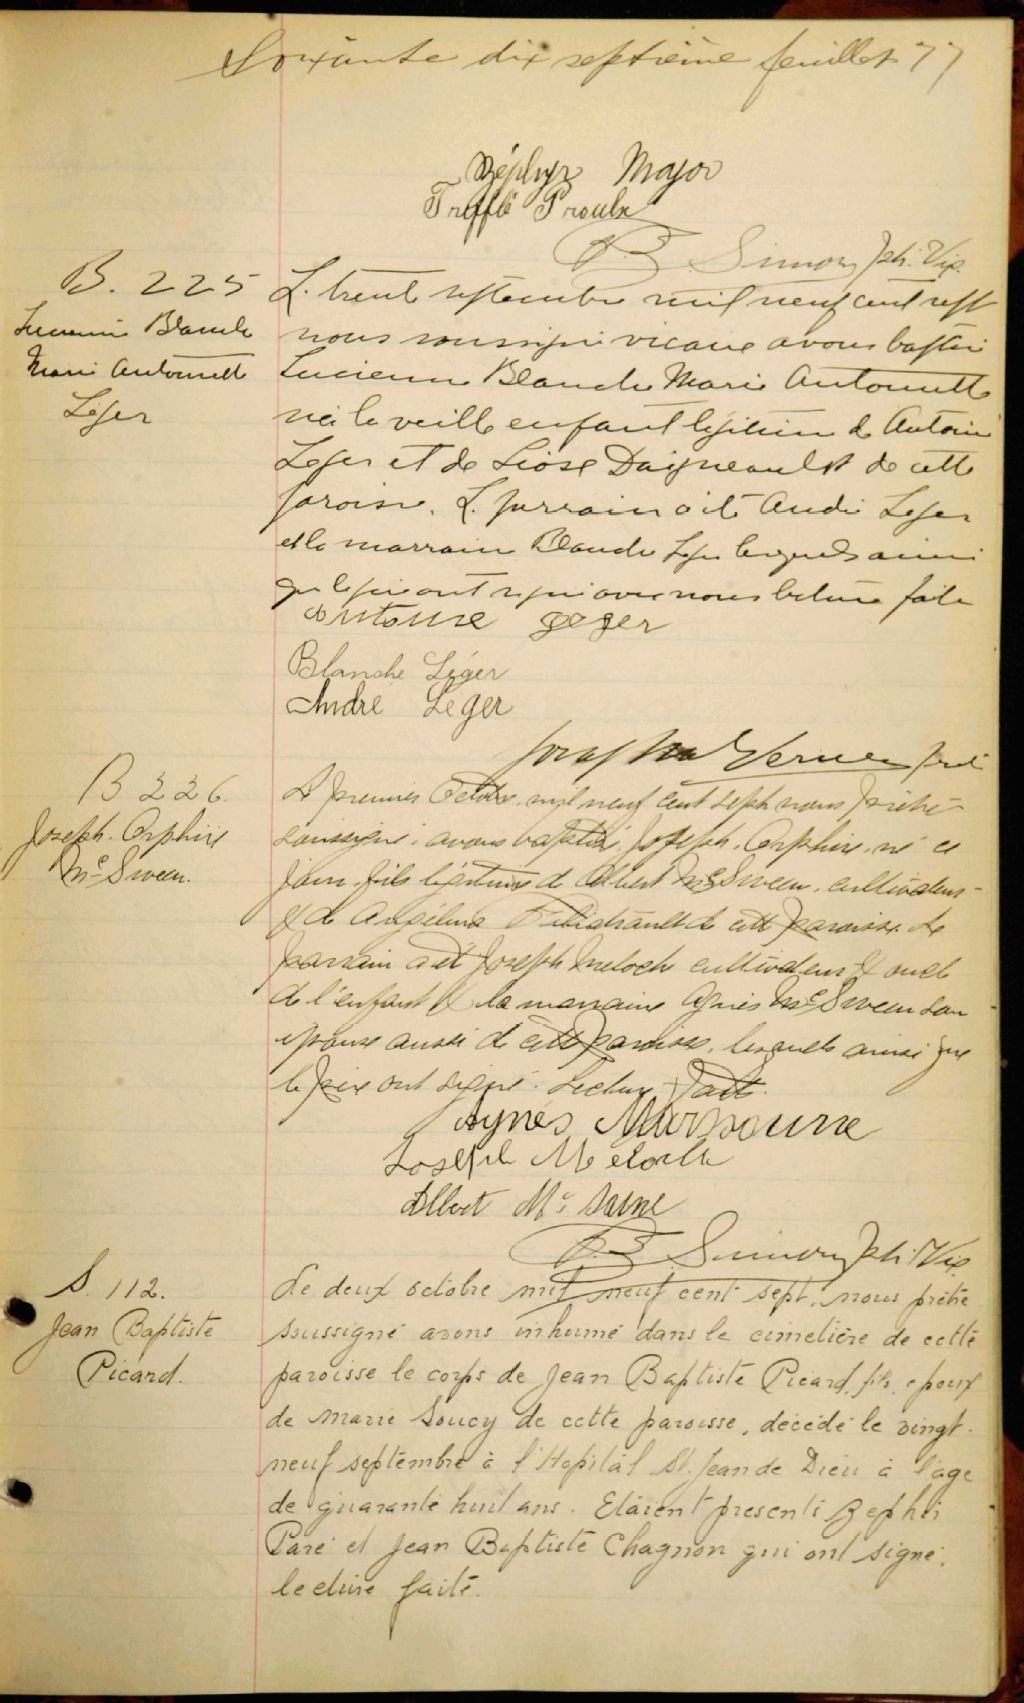 Soixante dix septième feuillet 77
Zéphyr Major
Trefflé Proulx
B Simon, Ptr. Vic.
B. 225
Lucienne Blanche
Marie Antoinette
Léger
Le trente septembre mil neuf cent sept
nous soussigné vicaire avons baptisé
Lucienne Blanche Marie Antoinette
née la veille enfant légitime de Antoine
Leger et de Daigneault de cette
paroisse. Le parrain a été André Leger
et la marraine Blanche Leger lesquels ainsi
que le père ont signé avec nous lecture faite
Antoine Leger
Blanche Léger
André Leger
Joseph Vernier ptre
B 226.
Joseph. Orphire
Mc Sween.
Le premier Octobre mil neuf cent sept nous prêtre
soussigné avons baptisé Joseph. Orphire. né ce
jour. fils légitime de Albert Mc Sween. cultivateur
& de Angélina de cette paroisse. Le
parrain a été Joseph Meloche cultivateur & oncle
de l'enfant & la marraine Agnès Mc Sween son
épouse aussi de cette paroisse, lesquels ainsi que
le père ont signé. Lecture faite.
Agnes
Joseph Méloche
Albert Mc
B Simon, Ptr. Vic.
S. 112.
Jean Baptiste
Picard.
Le deux octobre mil neuf cent sept, nous prêtre
soussigné avons inhumé dans le cimetière de cette
paroisse le corps de Jean Baptiste Picard, fils, époux
de Marie Soucy de cette paroisse, décédé le vingt-
neuf septembre à l'Hopital St. Jean de Dieu à l'age
de quarante huit ans. Etaient présents Zephir
Paré et Jean Baptiste Chagnon qui ont signé.
lecture faite.